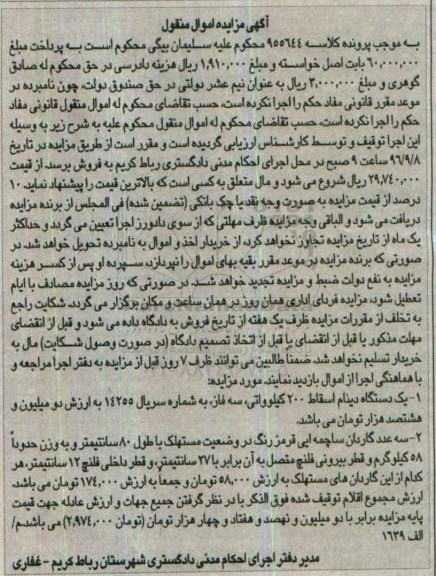 آگهی مزایده اموال منقول
به موجب پرونده کلاسه ۹۵۵۶۴۴ محکوم علیه سلیمان بیگی محکوم است به پرداخت مبلغ
۶۰,۰۰۰,۰۰۰ بابت اصل خواسته و مبلغ ۱,۹۱۰,۰۰۰ ریال هزینه دادرسی در حق محکوم له صادق
گوهری و مبلغ ۳,۰۰۰,۰۰۰ ریال به عنوان نیم عشر دولتی در حق صندوق دولت، چون نامبرده در
موعد مقرر قانونی مفاد حکم را اجرا نکرده است، حسب تقاضای محکوم له اموال منقول قانونی مفاد
حکم را اجرا نکرده است، حسب تقاضای محکوم له اموال منقول محکوم علیه به شرح زیر به وسیله
این اجرا توقیف و توسط کارشناس ارزیابی گردیده است و مقرر است از طریق مزایده در تاریخ
۹۶/۹/۸ ساعت ۹ صبح در محل اجرای احکام مدنی دادگستری رباط کریم به فروش برسد. از قیمت
۲۹,۷۴۰,۰۰۰ ریال شروع می شود و مال متعلق به کسی است که بالاترین قیمت را پیشنهاد نماید. ۱۰
درصد از قیمت مزایده به صورت وجه نقد یا چک بانکی (تضمین شده) فی المجلس از برنده مزایده
دریافت می شود و الباقی وجه مزایده ظرف مهلتی که از سوی دادورز اجرا تعیین می گردد و حداکثر
یک ماه از تاریخ مزایده تجاوز نخواهد کرد، از خریدار اخذ و اموال به نامبرده تحویل خواهد شد، در
صورتی که برنده مزایده در موعد مقرر بقیه بهای اموال را نپردازد، سپرده او پس از کسر هزینه
مزایده به نفع دولت ضبط و مزایده تجدید خواهد شد. در صورتی که روز مزایده مصادف با ایام
تعطیل شود، مزایده فردای اداری همان روز در همان ساعت و مکان برگزار می گردد. شکایت راجع
به تخلف از مقررات مزایده ظرف یک هفته از تاریخ فروش به دادگاه داده می شود و قبل از انقضای
مهلت مذکور یا قبل از انقضای یا قبل از اتخاذ تصمیم دادگاه (در صورت وصول شکایت) مال به
خریدار تسلیم نخواهد شد. ضمناً طالبین می توانند ظرف ۷ روز قبل از مزایده به دفتر اجرا مراجعه و
با هماهنگی اجرا از اموال بازدید نمایند. مورد مزایده:
۱- یک دستگاه دینام اسقاط ۲۰۰ کیلوواتی، سه فاز، به شماره سریال ۱۴۲۵۵ به ارزش دو میلیون و
هشتصد هزار تومان می باشد.
۲- سه عدد گاردان ساچمه ایی قرمز رنگ در وضعیت مستهلک با طول ۸۰ سانتیمتر و به وزن حدوداً
۵۸ کیلوگرم و قطر بیرونی فلنچ متصل به آن برابر با ۲۷ سانتیمتر، و قطر داخلی فلنچ ۱۲ سانتیمتر، هر
کدام از این گاردان های مستهلک به ارزش ۵۸,۰۰۰ تومان و جمعاً به ارزش ۱۷۴,۰۰۰ تومان می باشد.
ارزش مجموع اقلام توقیف شده فوق الذکر با در نظر گرفتن جمیع جهات و ارزش عادله جهت قیمت
پایه مزایده برابر با دو میلیون و نهصد و هفتاد و چهار هزار تومان (تومان ۲,۹۷۴,۰۰۰) می باشد.م/
الف ۱۶۳۹
مدیر دفتر اجرای احکام مدنی دادگستری شهرستان رباط کریم - غفاری